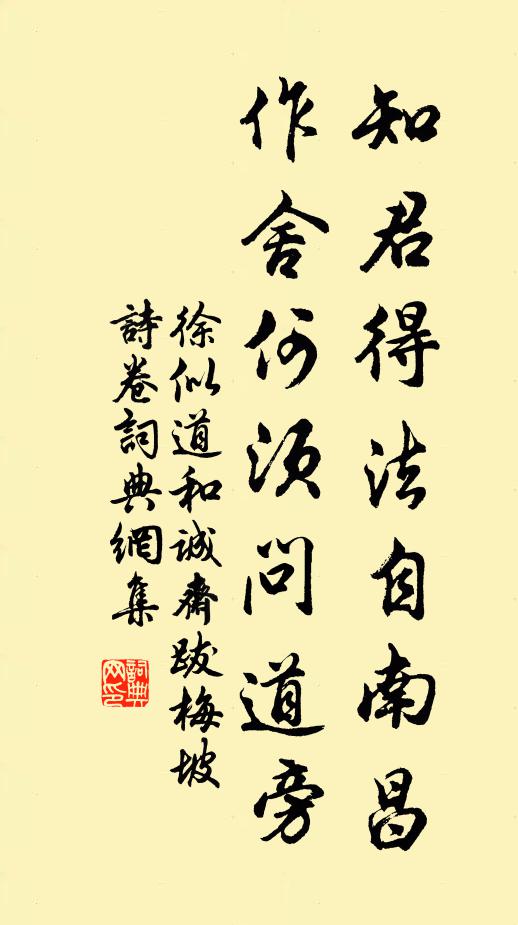 知君得法自南昌
作舍何須問道旁
徐似道和誠齋跋梅坡
詩卷詞典網集
詞典
网印